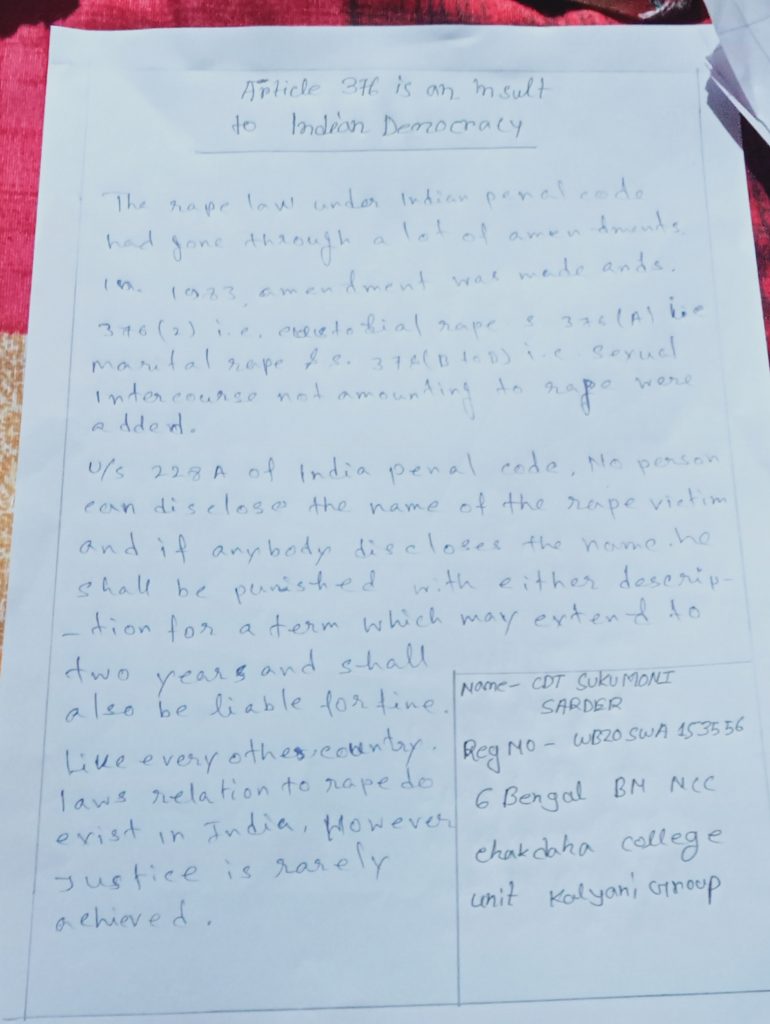 Article 376 is an Insult
to Indian Democracy
The rape law under Indian penal code
had gone through a lot of amendments.
In. 1983, amendment was made and s.
376(2) i.e. custodial rape s 376(A) i.e
marital rape & s. 376(B to D) i.e. Sexual
Intercourse not amounting to rape were
added.
U/s 228A of India penal code, No person
can disclose the name of the rape victim
and if anybody discloses the name. he
shall be punished with either descrip-
-tion for a term which may extend to
two years and shall
also be liable for fine.
Like every other country.
laws relation to rape do
exist in India, However
Justice is rarely
achieved.
Name- CDT SUKUMONI
SARDER
Reg NO - WB20 SWA 153556
6 Bengal BN NCC
chakdaha college
unit Kalyani Group